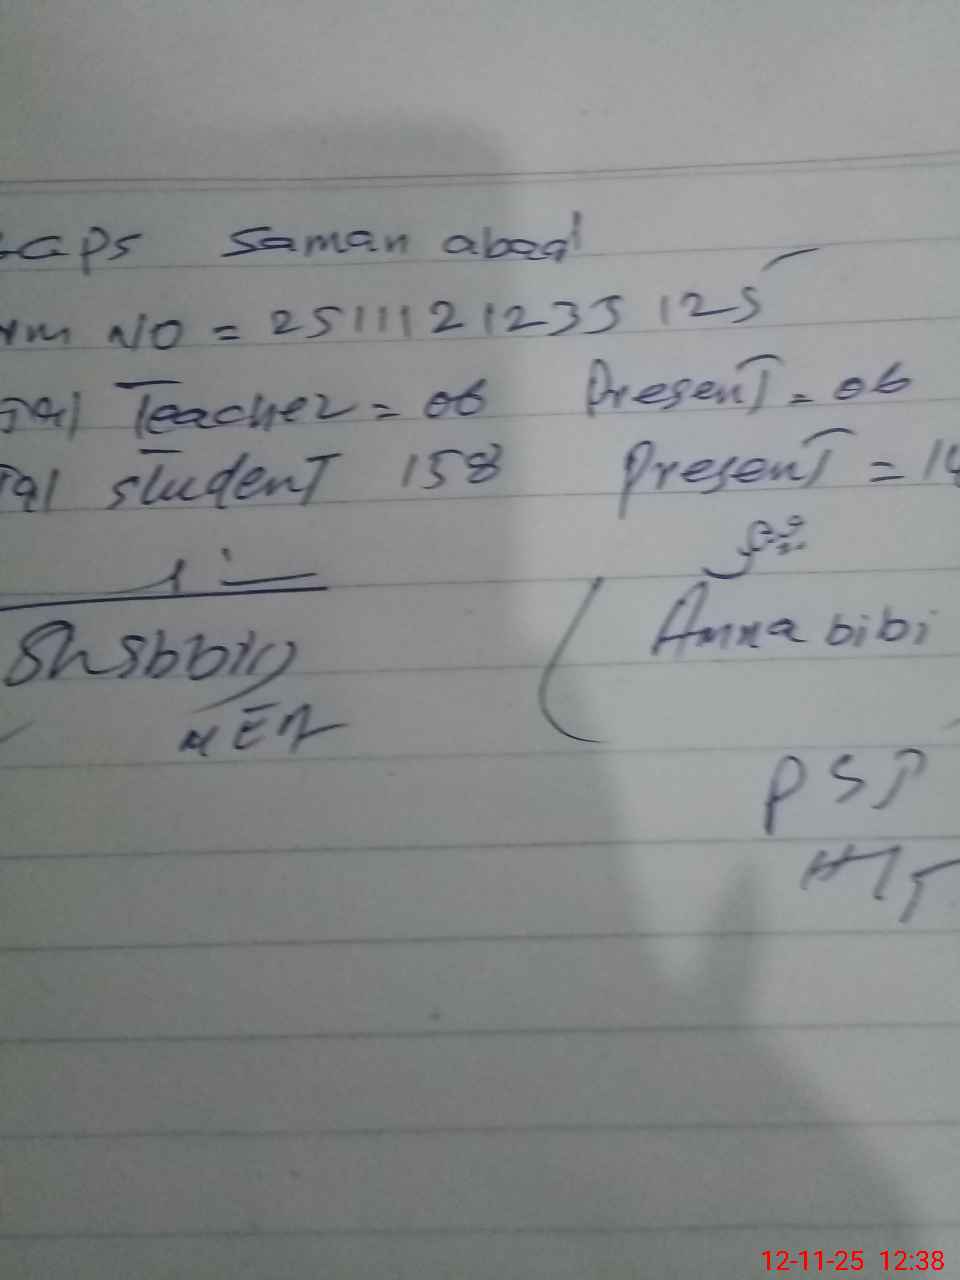 GGPS Saman abad
rm NO = 2511121233125
Total Teacher = 06 Present = 06
Total student 158 Present = 14
Shabbir Amna bibi
PST
HT
12-11-25 12:38